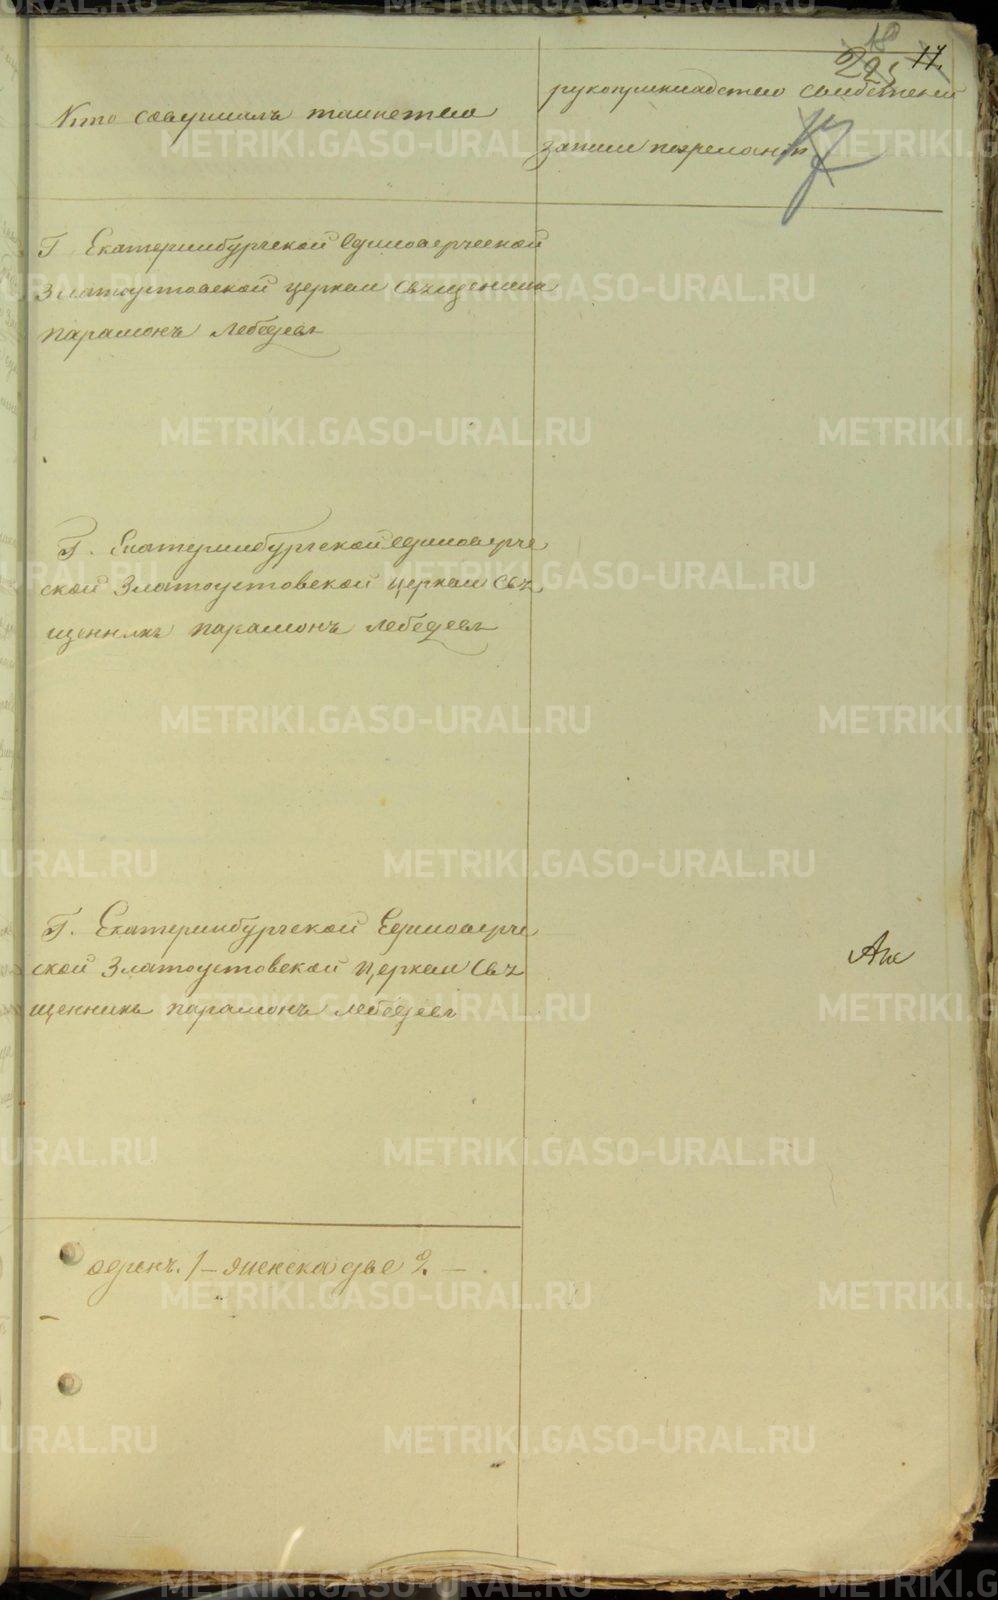 18
295
17.
Кто совершалъ таинство
рукоприкладство свидетелей
записи по желанію
Г. Екатеринбургской Единоверческой
Златоустовской церкви Свящщенникъ
Парамонъ Лебедевъ
Г. Екатеринбургской Единоверче
ской Златоустовской церкви Свя
щенникъ Парамонъ Лебедевъ
Г. Екатеринбургской Единоверче
ской Златоустовской церкви Свя
щенникъ Парамонъ Лебедевъ
1 – женска две 2. –
METRIKI.GASO-URAL.RU